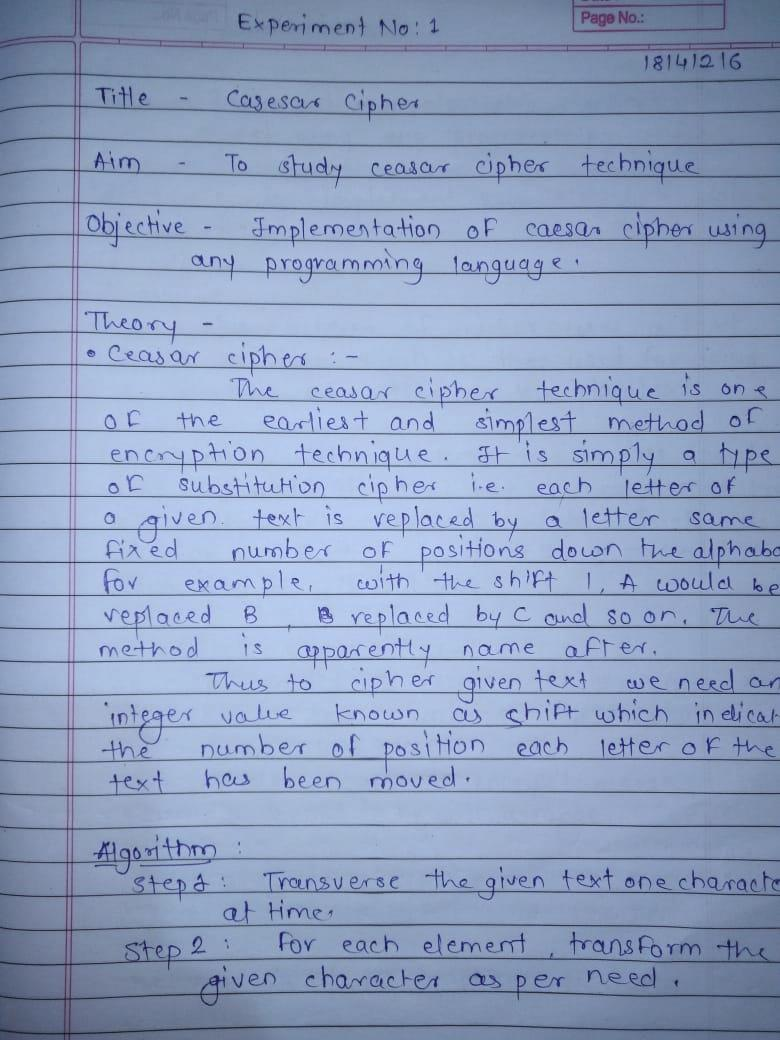 Experiment No: 1
Page No.:
18141216
Title - Casesar Cipher
Aim - To study ceasar cipher technique
Objective - Implementation of caesar cipher using
any programming language.
Theory -
• Ceasar cipher :-
The ceasar cipher technique is one
of the earliest and simplest method of
encryption technique. It is simply a type
of substitution cipher i.e. each letter of
a given. text is replaced by a letter same
fixed number of positions down the alphabe
for example, with the shift 1, A would be
replaced B , B replaced by C and so on. The
method is apparently name after.
Thus to cipher given text we need an
integer value known as shift which indicat
the number of position each letter of the
text has been moved.
Algorithm :
Step 1 : Transverse the given text one characte
at time.
Step 2 : For each element, transform the
given character as per need.